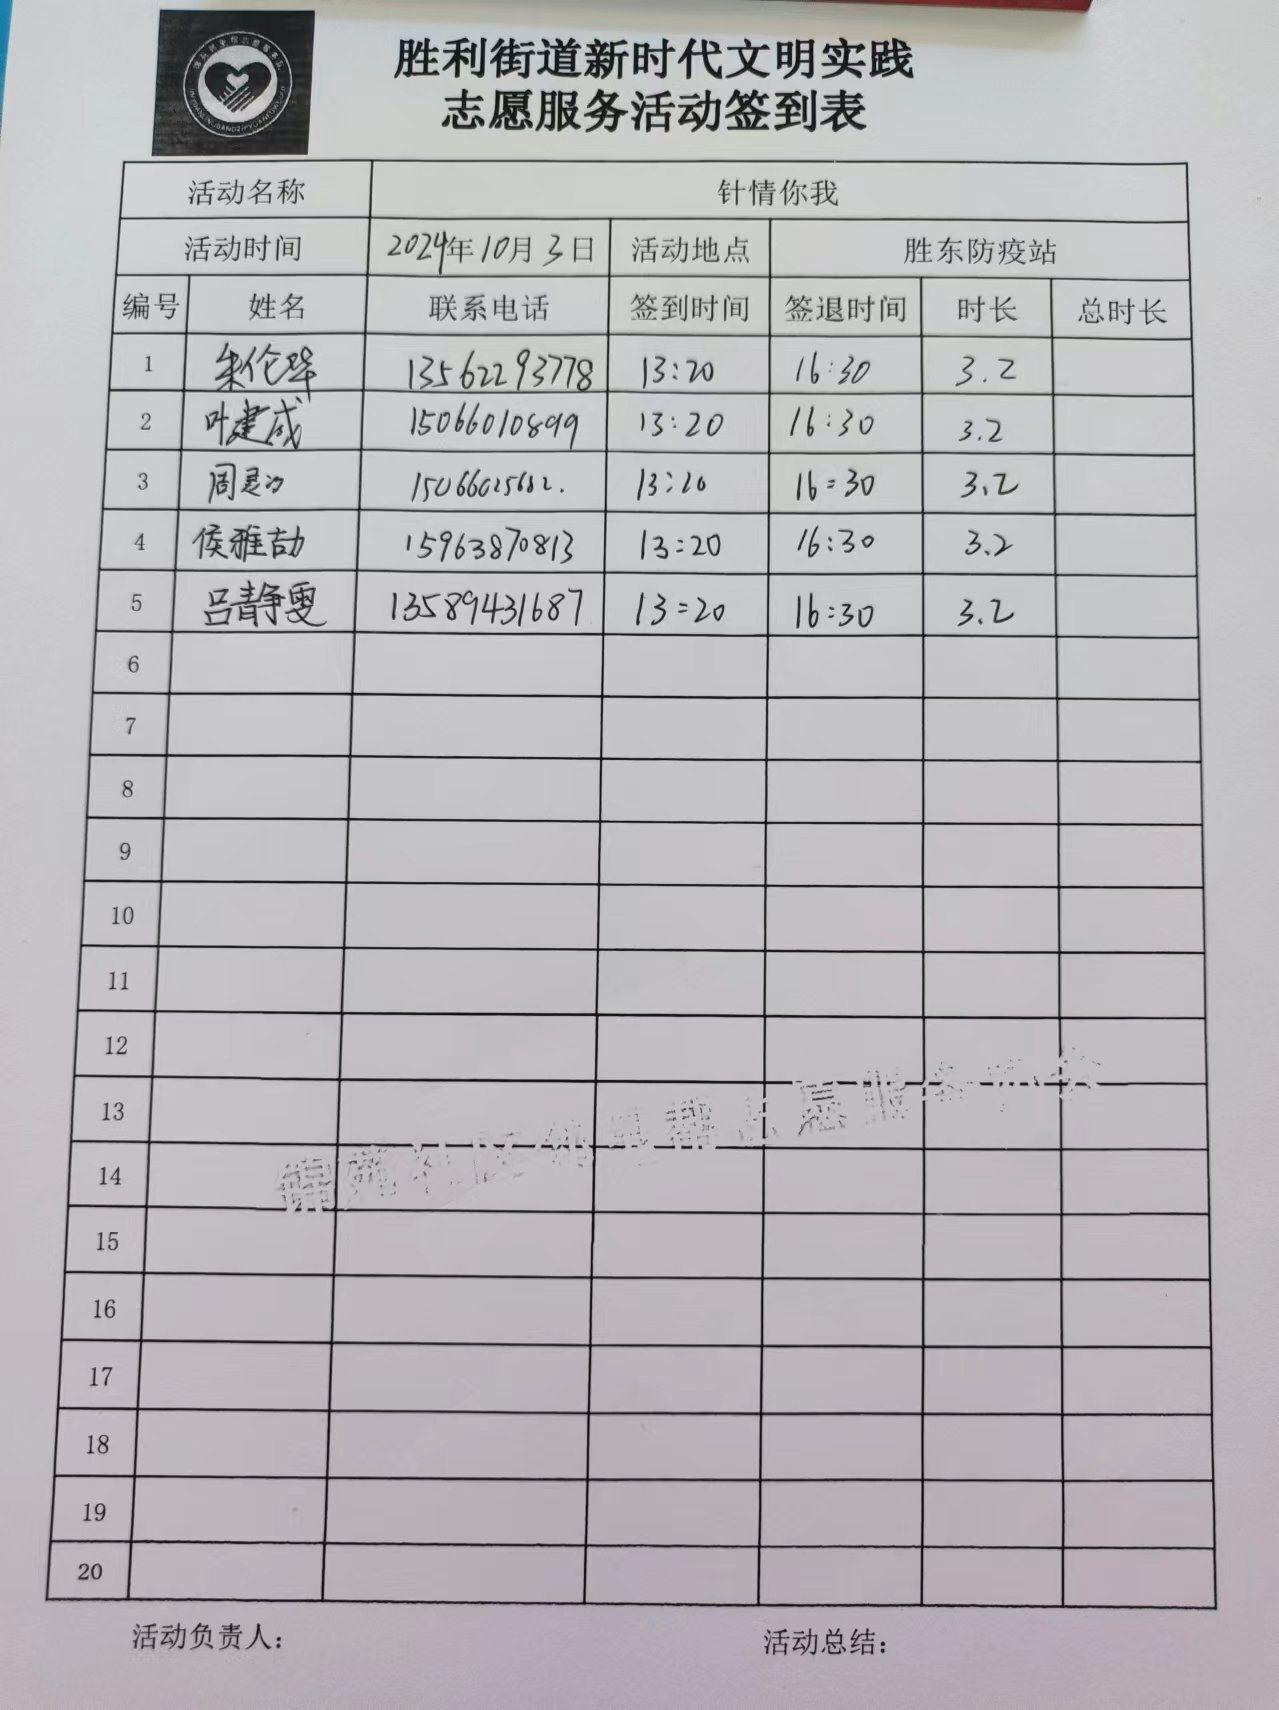 胜利街道新时代文明实践
志愿服务活动签到表
活动名称 针情你我
活动时间 2024年10月3日 活动地点 胜东防疫站
编号 姓名 联系电话 签到时间 签退时间 时长 总时长
1 朱伦晔 13562293778 13:20 16:30 3.2
2 叶建成 15066010899 13:20 16:30 3.2
3 周 13:20 16:30 3.2
4 侯雅喆 15963870813 13:20 16:30 3.2
5 吕静雯 13589431687 13:20 16:30 3.2
6
7
8
9
10
11
12
13
14
15
16
17
18
19
20
活动负责人: 活动总结: